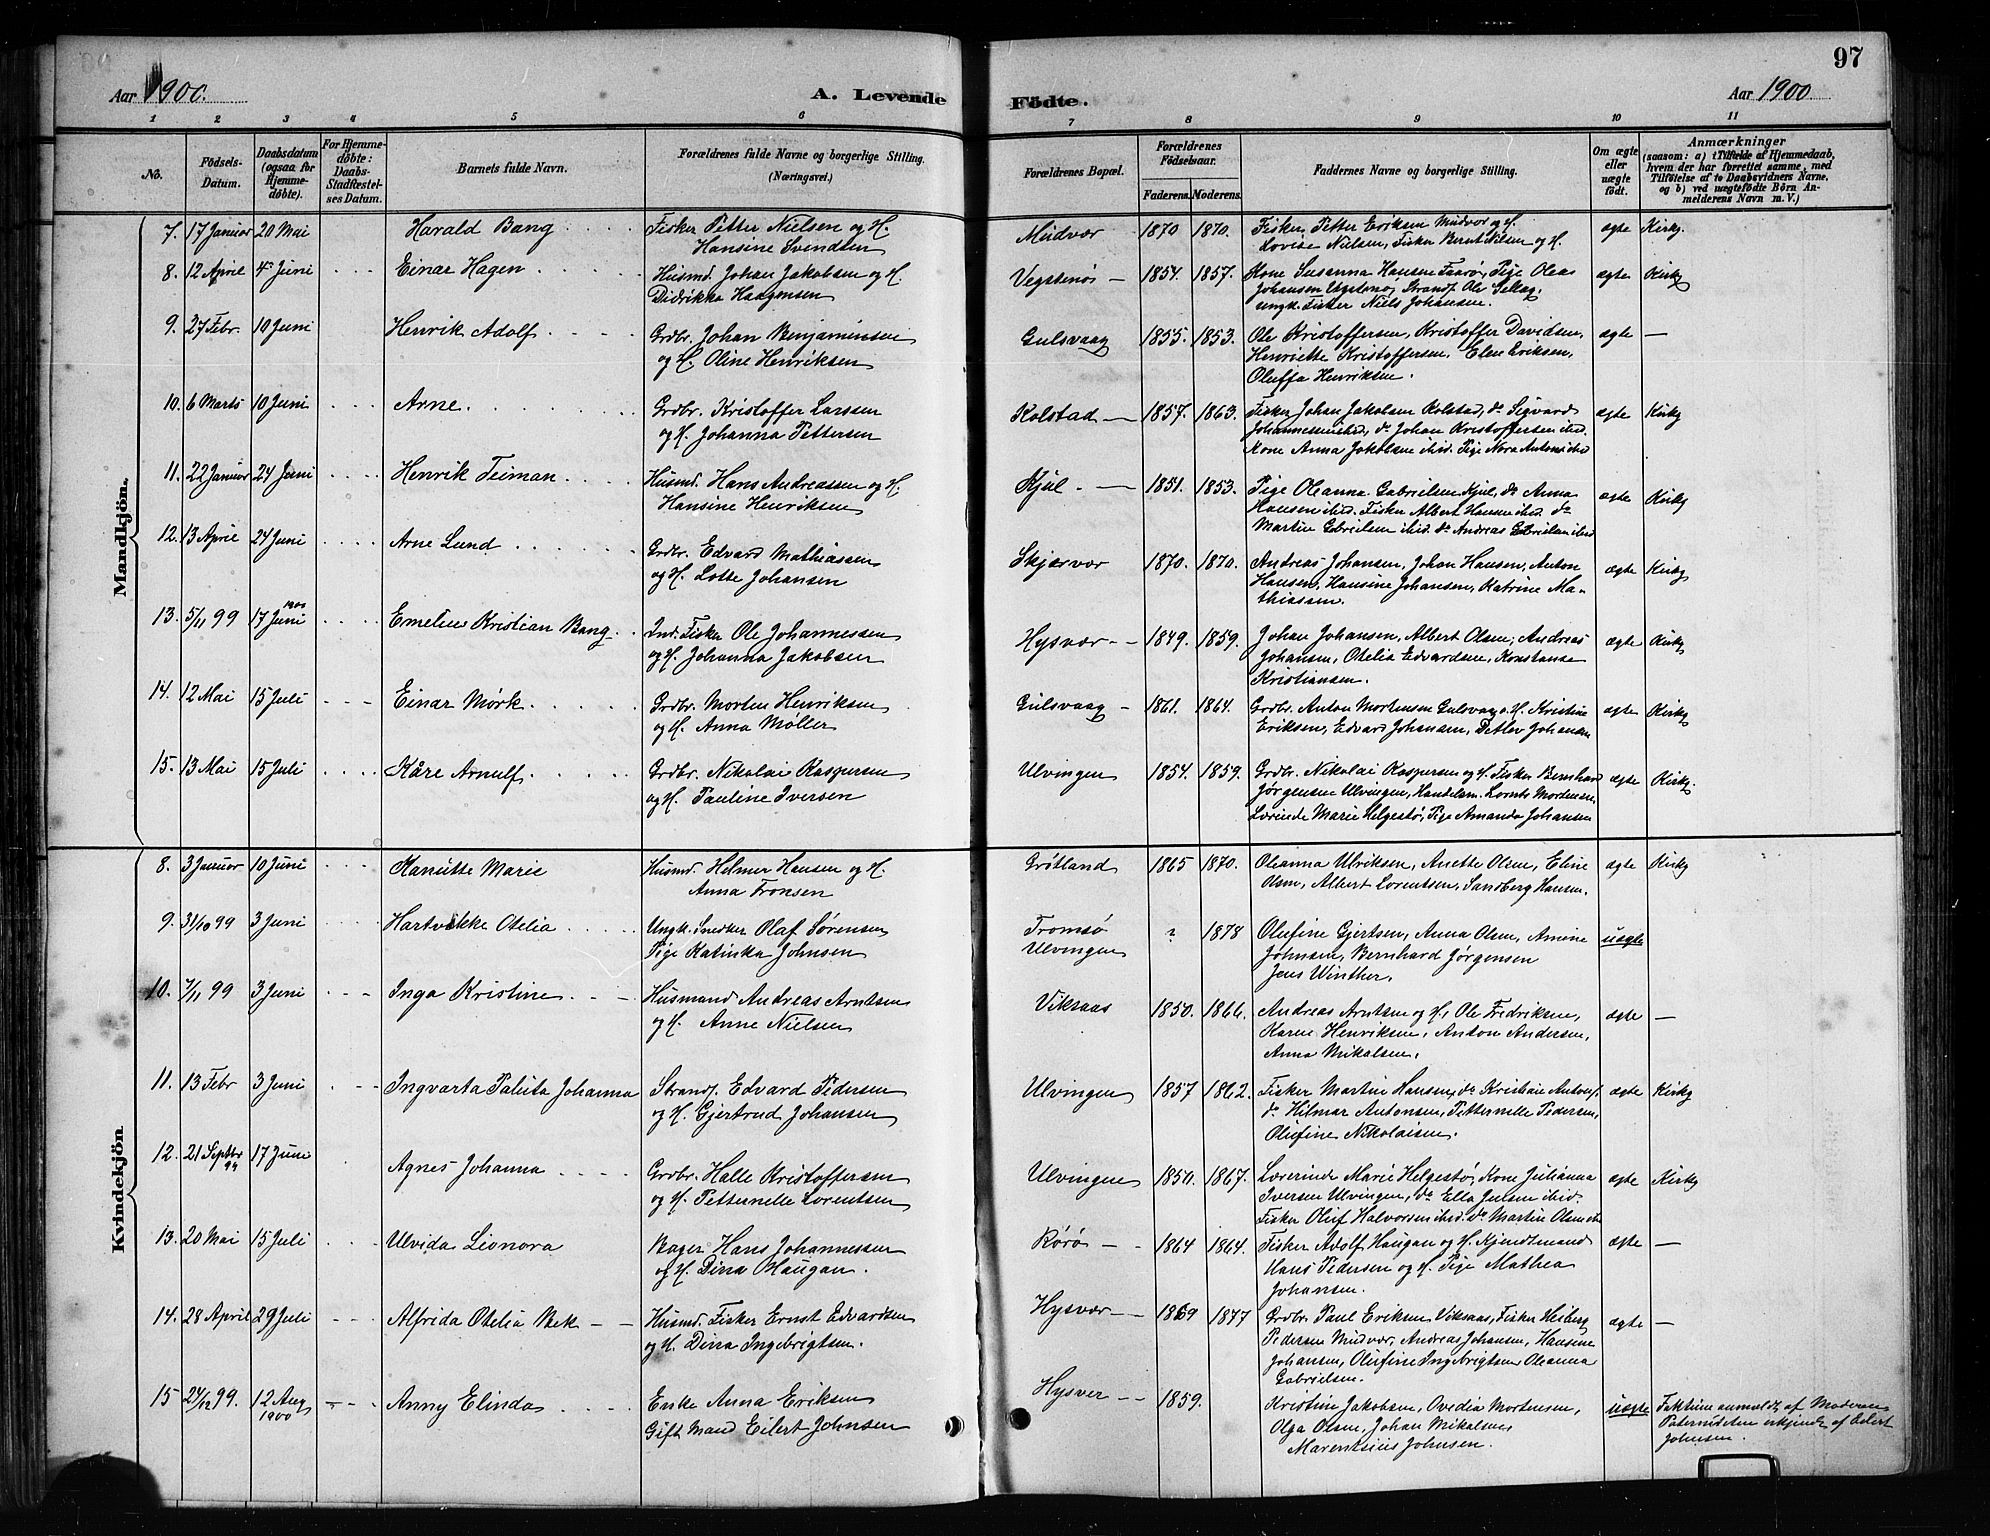 97
Aar 1900.
A. Levende
Födte.
Aar 1900
1 2 3 4 5 6 7 8 9 10 11
No.
Födsels-Datum.
Daabsdatum (ogsaa for Hjemmedöbte).
For Hjemmedöbte: Daabs-Stadfæstelses Datum.
Barnets fulde Navn.
Forældrenes fulde Navne og borgerlige Stilling.
(Næringsvei.)
Forældrenes Bopæl.
Forældrenes Födselsaar.
Faderens. Moderens.
Faddernes Navne og borgerlige Stilling.
Om ægte eller uægte födt.
Anmærkninger
(saasom: a) i Tilfælde af Hjemmedaab,
hvem der har forrettet samme, med
Tilföielse af to Daabsvidners Navne,
og b) ved uægtefödte Börn Anmelderens Navn m. V.)
Mandkjön.
7. 17 Januar 20 Mai Harald Bang Fisker Petter Nielsen og H. Mudvær 1870 1870. Fisker Petter Eriksen Mudvær og H. ægte Kirkg.
Hansine Svendsen Lovise Nielsen, Fisker Bernt Nilsen og H.
8. 12 April 4 Juni Einar Hagen Husmd. Johan Jakobsen og H. Vegstenøs 1854. 1857. Kone Susanna Hansen Faarø, Pige Olea ægte Kirkg
Didrikka Haagensen Johansen Vegstenø, Strands. Ole
ungk. Fisker Niels Johansen.
9. 27 Febr. 10 Juni Henrik Adolf Grdbr. Johan Benjaminsen Gulsvaag 1855. 1853. Ole Kristoffersen, Kristoffer Davidsen, ægte —
og H. Oline Henriksen Henriette Kristoffersen, Elen Eriksen,
Oluffa Henriksen.
10. 6 Marts 10 Juni Arne Grdbr. Kristoffer Larssen Kolstad 1857. 1863. Fisker Johan Jakobsen Kolstad, do Sigvard ægte Kirkg
og H. Johanna Pettersen Johannessen ibid, do Johan Kristoffersen ibid
Kone Anna Jakobsen ibid. Pige Nora Antoni ibid
11. 22 Januar 24 Juni Henrik Teiman Husmd. Hans Andreassen og H. Kjul 1851. 1853. Pige Oleanna Gabrielsen Kjul, do Anna ægte Kirkg
Hansine Henriksen Hansen ibid. Fisker Albert Hansen ibid. do
Martin Gabrielsen ibid. do Andreas Gabrielsen ibid
12. 13 April 24 Juni Arne Lund Grdbr. Edvard Mathiassen Skjærvær 1870. 1870. Andreas Johansen, Johan Hansen, Anton ægte Kirkg
og H. Lotte Johansen Hansen, Hansine Johansen, Katrine Mathiassen.
13. 5/11 99 17 Juni 1900 Emelius Kristian Bang Ind. Fisker Ole Johannessen Hysvær 1849. 1859. Johan Johansen, Albert Olsen, Andreas ægte Kirkg
og H. Johanna Jakobsen Johansen, Otelia Edvardsen, Konstanse
Kristiansen.
14. 12 Mai 15 Juli Einar Mørk Grdbr. Morten Henriksen Gulsvaag 1861. 1864. Grdbr. Anton Mortensen Gulsvaag o. H. Kristine ægte Kirkg
og H. Anna Møller Eriksen, Edvard Johansen, Detlev Johansen
15. 13 Mai 15 Juli Kåre Arnulf Grdbr. Nikolai Kaspersen Ulvingen 1854. 1859. Grdbr. Nikolai Kaspersen og H. Fisker Bernhard ægte Kirkg.
og H. Pauline Iversen Jørgensen Ulvingen, Handelsm. Lornts Mortensen,
Lærinde Marie Helgestø, Pige Amanda Johansen
Kvindekjön
8. 3 Januar 10 Juni Hanitte Marie Husmd. Helmer Hansen og H. Grøtland 1865 1870. Oleanna Ulriksen, Anette Olsen, Eline ægte Kirkg
Anna Fronsen Olsen, Albert Lorentsen, Sandberg Hansen.
9. 31/10 99 3 Juni Hartvikke Otelia Ungk. Snedker Olaf Sørensen Tromsø ? 1878 Olufine Gjertsen, Anna Olsen, Amine uægte
Pige Katinka Johnsen Ulvingen Johnsen, Bernhard Jørgensen
Jens Winther.
10. 7/11 99 3 Juni Inga Kristine Husmand Andreas Arntsen Viksaas 1850. 1866. Andreas Arntsen og H. Ole Fredriksen, ægte —
og H. Anne Nielsen Karen Henriksen, Anton Andersen,
Anna Mikalsen.
11. 13 Febr 3 Juni Ingvarta Palnita Johanna Strands. Edvard Pedersen Ulvingen 1857 1862. Fisker Martin Hansen, do Kristian Antons. ægte Kirkg
og H. Gjertrud Johansen do Hilmar Antonsen, Petternelle Pedersen,
Olufine Nikolaisen.
12. 21 Septbr 99 17 Juni Agnes Johanna Grdbr. Halle Kristoffersen Ulvingen 1850. 1867. Lærerinde Marie Helgestø, Kone Julianna ægte Kirkg
og H. Petternelle Lorentsen Iversen Ulvingen, do Ella Jensen ibid.
Fisker Oluf Halvorsen ibid. do Martin Olsen ibid
13. 20 Mai 15 Juli Ulvida Lionora Bager Hans Johannessen Rørø 1864 1864. Fisker Adolf Haugan og H. Kjendtmand ægte —
og H. Dina Haugan. Hans Pedersen og H. Pige Mathea
Johansen.
14. 28 April 29 Juli Alfrida Otelia Bek Husmd. Fisker Ernst Edvardsen Hysvær 1869 1877 Grdbr. Paul Eriksen Viksaas, Fisker Heiberg ægte —
og H. Dina Ingebrigtsen. Pedersen Mudvær, Andreas Johansen, Hansine
Johansen, Olufine Ingebrigtsen Oleanna
Gabrielsen.
15 24/12 99. 12 Aug 1900 Anny Elinda Enke Anna Eriksen Hysvær 1859. Kristine Jakobsen, Ovedia Mortensen, uægte Faktum anmeldt af Moderen
Gift Mand Eilert Johnsen Olga Olsen, Johan Mikalsen Paterniteten erkjendt af Eilert
Marentsius Johnsen. Johnsen.